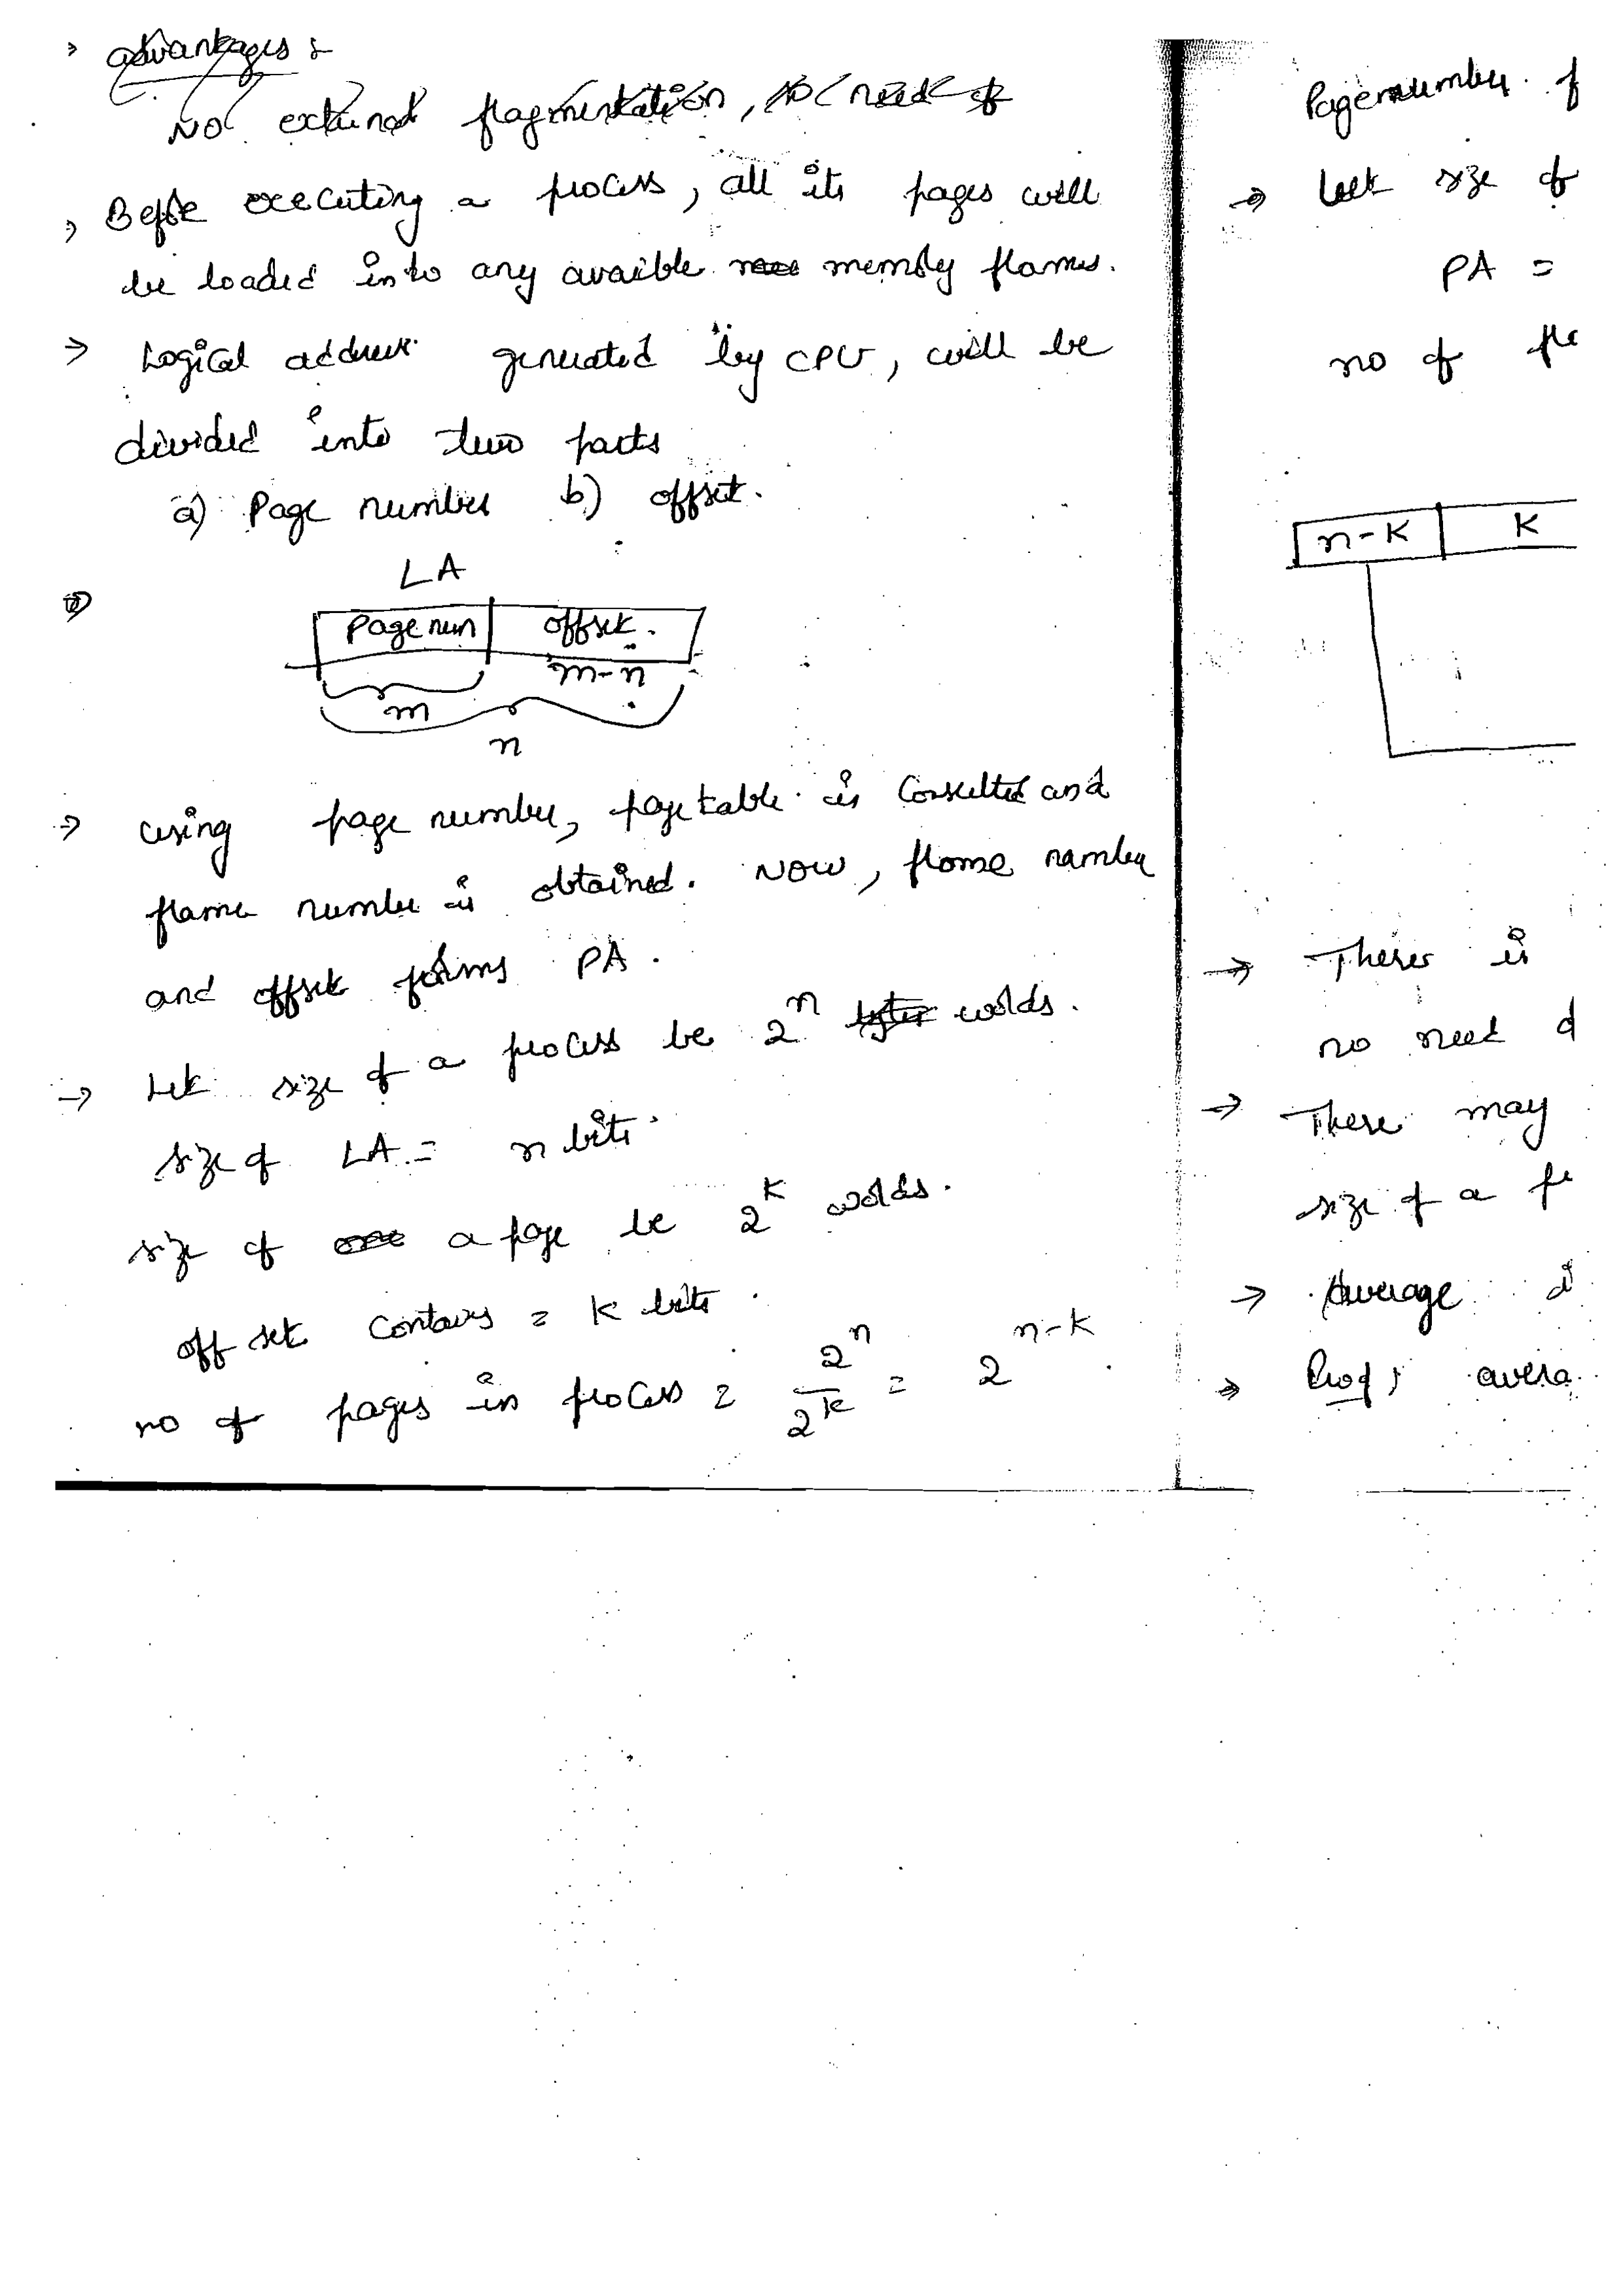 advantages :
No external fragmentation, no need of
Before executing a process, all its pages will
be loaded into any avaible memory frames.
→ Logical address generated by CPU, will be
divided into two parts
a) Page number b) offset.
LA
Page num offset.
m-n
m
n
→ using page number, page table is Consulted and
frame number is obtained. Now, frame number
and offset forms PA.
→ Let size of a process be 2^n words.
size of LA = n bits.
size of a page be 2^k words.
off set contains = k bits.
no of pages in process = 2^n/2^k = 2^{n-k}.
Page number f
→ Let size of
PA =
no of
n-k K
→ There is
no need
→ There may
size of a
→ Average
→ Proof; avera